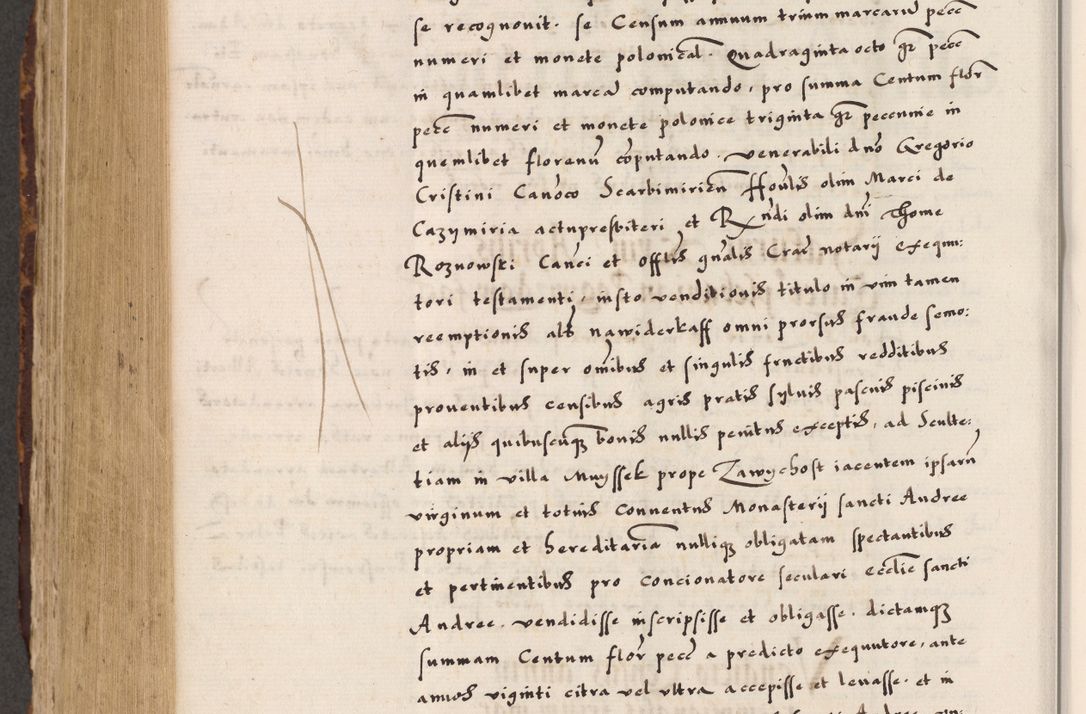 se recognovit. se Censum annuum trium marcarū pecc̄
numeri et monete polonical̄. Quadraginta octo gr̄ pecc̄
in quamlibet marcā computando, pro summa Centum flor̄
pecc̄ numeri et monete polonice triginta gr̄ peccunie in
quemlibet florenū cōputando. venerabili dn̄o Gregorio
Cristini Canōco Scarbimirien̄ ffovlis olim Marci de
Cazymiria actupresbiteri et R̄n̄di olim dn̄i Thome
Roznowski Canci et offtis gn̄alis Crac̄ notarij exequu:
tori testamenti, iusto venditionis titulo in vim tamen
reemptionis als nawiderkaff omni prorsus fraude semo:
tis, in et super om̄ibus et singulis fructibus redditibus
proventibus censibus agris pratis sylvis pascuis piscinis
et aliis quibuscūq̄ bonis nullis penitus exceptis, ad Sculte:
tiam in villa Muyssek prope Zawychost iacentem ipsarū
virginum et totius Conventus Monasterij sancti Andree
propriam et hereditariā nulliq̄ obligatam spectantibus
et pertinentibus pro Concionatore seculari eccl̄ie sancti
Andree. vendidisse inscripsisse et obligasse. dictamq̄
summam Centum flor̄ pecc̄ a predicto exequutore, ante
annos viginti citra vel ultra accepisse et levasse. et in
sancti Andree